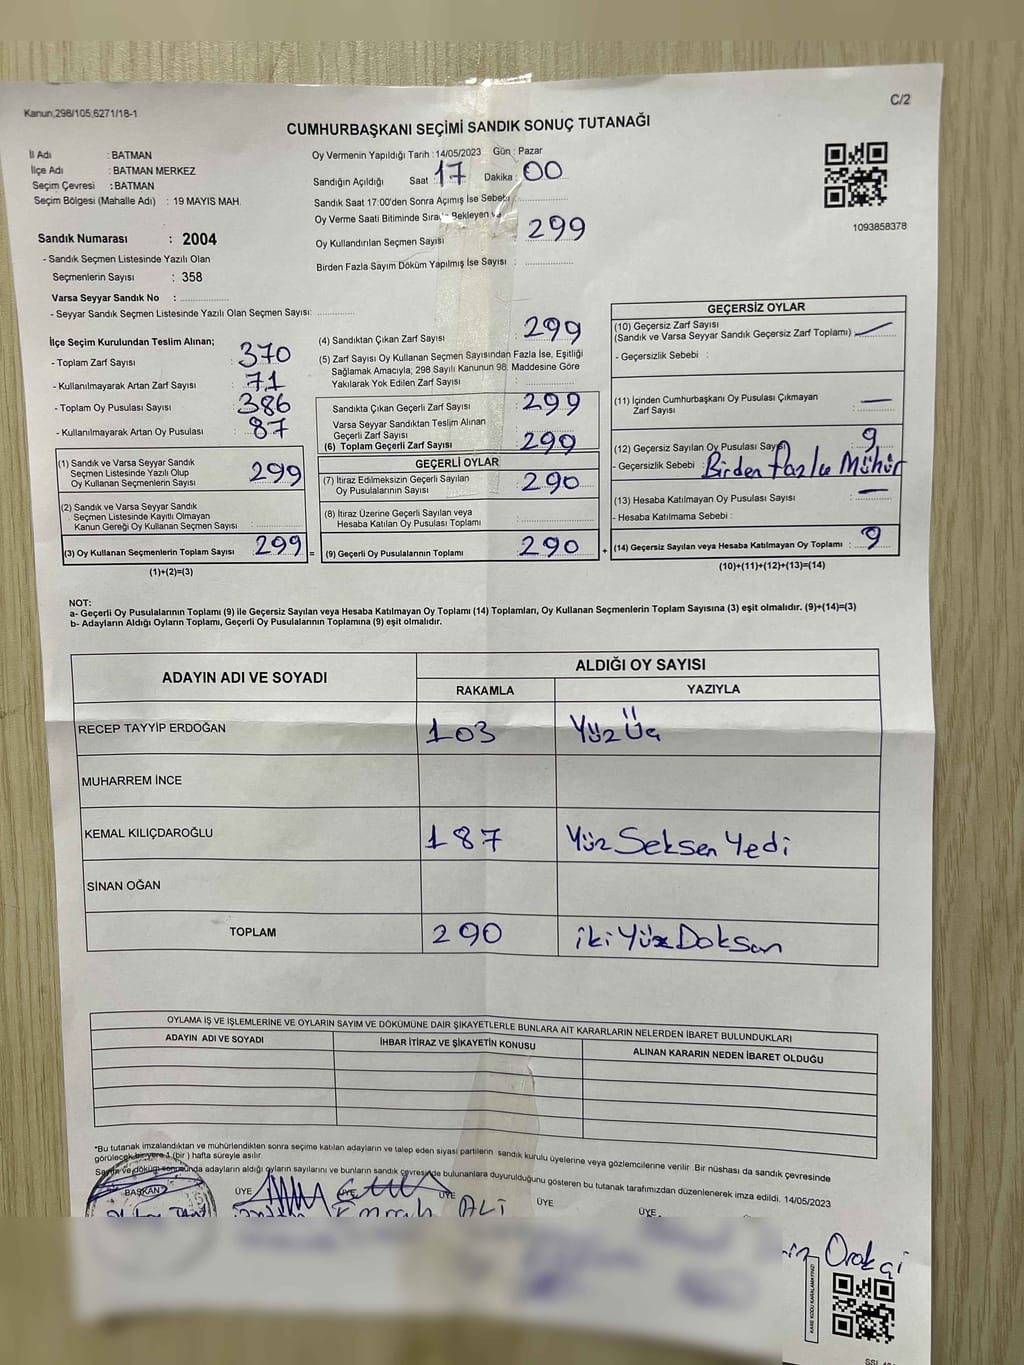 Kanun,298/105,6271/18-1
C/2
CUMHURBAŞKANI SEÇİMİ SANDIK SONUÇ TUTANAĞI
İl Adı : BATMAN
İlçe Adı : BATMAN MERKEZ
Seçim Çevresi : BATMAN
Seçim Bölgesi (Mahalle Adı) : 19 MAYIS MAH.
Sandık Numarası : 2004
- Sandık Seçmen Listesinde Yazılı Olan
Seçmenlerin Sayısı : 358
Varsa Seyyar Sandık No :
- Seyyar Sandık Seçmen Listesinde Yazılı Olan Seçmen Sayısı:
Oy Vermenin Yapıldığı Tarih : 14/05/2023 Gün : Pazar
Sandığın Açıldığı Saat : 17 Dakika : 00
Sandık Saat 17:00'den Sonra Açımış İse Sebebi
Oy Verme Saati Bitiminde Sırada Bekleyen ve
Oy Kullandırılan Seçmen Sayısı 299
Birden Fazla Sayım Döküm Yapılmış İse Sayısı :
1093858378
İlçe Seçim Kurulundan Teslim Alınan;
- Toplam Zarf Sayısı : 370
- Kullanılmayarak Artan Zarf Sayısı : 71
- Toplam Oy Pusulası Sayısı : 386
- Kullanılmayarak Artan Oy Pusulası : 87
(1) Sandık ve Varsa Seyyar Sandık
Seçmen Listesinde Yazılı Olup
Oy Kullanan Seçmenlerin Sayısı : 299
(2) Sandık ve Varsa Seyyar Sandık
Seçmen Listesinde Kayıtlı Olmayan
Kanun Gereği Oy Kullanan Seçmen Sayısı :
(3) Oy Kullanan Seçmenlerin Toplam Sayısı : 299 =
(1)+(2)=(3)
(4) Sandıktan Çıkan Zarf Sayısı : 299
(5) Zarf Sayısı Oy Kullanan Seçmen Sayısından Fazla İse, Eşitliği
Sağlamak Amacıyla; 298 Sayılı Kanunun 98. Maddesine Göre
Yakılarak Yok Edilen Zarf Sayısı :
Sandıkta Çıkan Geçerli Zarf Sayısı : 299
Varsa Seyyar Sandıktan Teslim Alınan
Geçerli Zarf Sayısı :
(6) Toplam Geçerli Zarf Sayısı : 299
GEÇERLİ OYLAR
(7) İtiraz Edilmeksizin Geçerli Sayılan
Oy Pusulalarının Sayısı : 290
(8) İtiraz Üzerine Geçerli Sayılan veya
Hesaba Katılan Oy Pusulası Toplamı :
(9) Geçerli Oy Pusulalarının Toplamı : 290 +
GEÇERSİZ OYLAR
(10) Geçersiz Zarf Sayısı
(Sandık ve Varsa Seyyar Sandık Geçersiz Zarf Toplamı) : —
- Geçersizlik Sebebi :
(11) İçinden Cumhurbaşkanı Oy Pusulası Çıkmayan
Zarf Sayısı : —
(12) Geçersiz Sayılan Oy Pusulası Sayısı 9
- Geçersizlik Sebebi : Birden fazla Mühür
(13) Hesaba Katılmayan Oy Pusulası Sayısı : —
- Hesaba Katılmama Sebebi :
(14) Geçersiz Sayılan veya Hesaba Katılmayan Oy Toplamı : 9
(10)+(11)+(12)+(13)=(14)
NOT:
a- Geçerli Oy Pusulalarının Toplamı (9) ile Geçersiz Sayılan veya Hesaba Katılmayan Oy Toplamı (14) Toplamları, Oy Kullanan Seçmenlerin Toplam Sayısına (3) eşit olmalıdır. (9)+(14)=(3)
b- Adayların Aldığı Oyların Toplamı, Geçerli Oy Pusulalarının Toplamına (9) eşit olmalıdır.
ADAYIN ADI VE SOYADI
ALDIĞI OY SAYISI
RAKAMLA YAZIYLA
RECEP TAYYİP ERDOĞAN 103 Yüz Üç
MUHARREM İNCE
KEMAL KILIÇDAROĞLU 187 Yüz Seksen Yedi
SİNAN OĞAN
TOPLAM 290 iki Yüz Doksan
OYLAMA İŞ VE İŞLEMLERİNE VE OYLARIN SAYIM VE DÖKÜMÜNE DAİR ŞİKAYETLERLE BUNLARA AİT KARARLARIN NELERDEN İBARET BULUNDUKLARI
ADAYIN ADI VE SOYADI İHBAR İTİRAZ VE ŞİKAYETİN KONUSU ALINAN KARARIN NEDEN İBARET OLDUĞU
*Bu tutanak imzalandıktan ve mühürlendikten sonra seçime katılan adayların ve talep eden siyasi partilerin sandık kurulu üyelerine veya gözlemcilerine verilir Bir nüshası da sandık çevresinde
görülecek bir yere 1 (bir ) hafta süreyle asılır.
Sayım ve döküm sonucunda adayların aldığı oyların sayılarını ve bunların sandık çevresinde bulunanlara duyurulduğunu gösteren bu tutanak tarafımızdan düzenlenerek imza edildi. 14/05/2023
BAŞKAN ÜYE ÜYE ÜYE ÜYE ÜYE
Emrah ALİ
Orakçi
KARE KODU KARALAMAYINIZ!